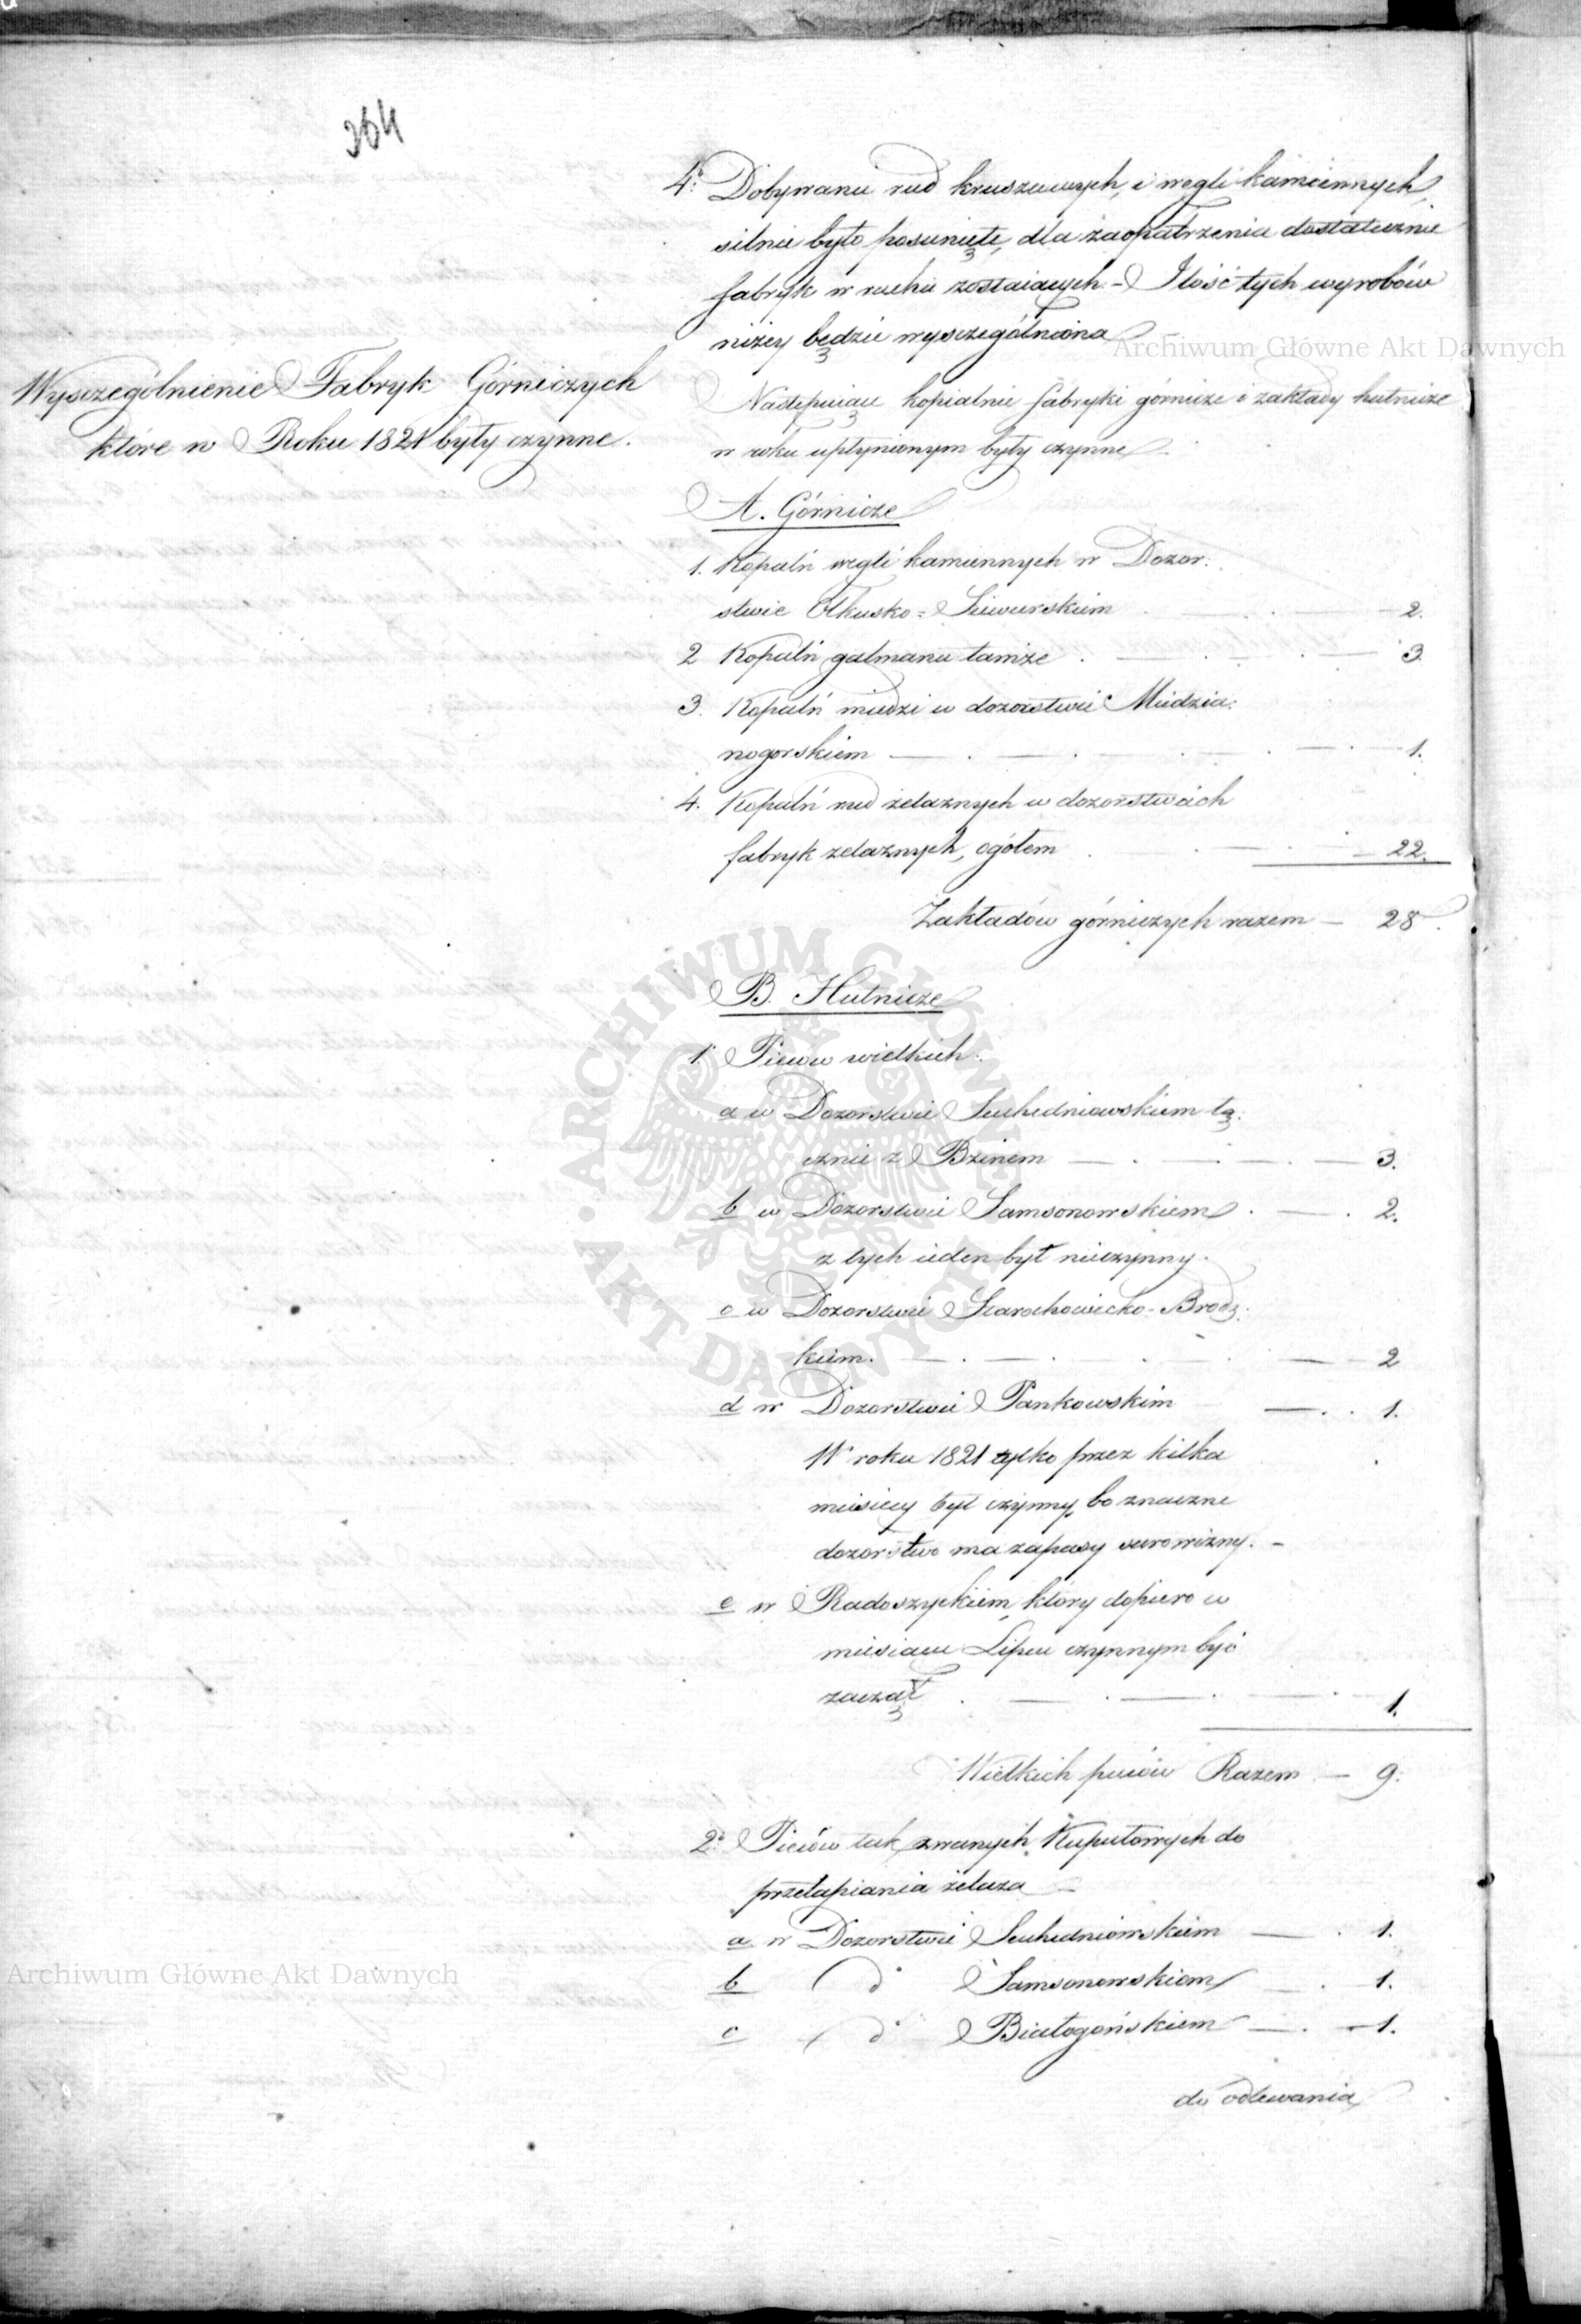 364
4º Dobywanie rud kruszcowych, i węgli kamiennych,
silnie było posunięte, dla zaopatrzenia dostatecznie
fabryk w ruchu zostaiących. - Ilość tych wyrobów
niżey będzie wyszczególniona
Archiwum Główne Akt Dawnych
Wyszczególnienie Fabryk Górniczych
które w Roku 1821 były czynne.
Następuiące kopialnie fabryki górnicze i zakłady hutnicze
w roku upłynionym były czynne.
A. Górnicze
1. Kopalń węgli kamiennych w Dozor:
stwie Olkusko = Siewierskiem 2.
2 Kopalń galmanu tamże 3.
3. Kopalń miedzi w dozorstwie Miedzia:
nogorskiem 1.
4. Kopalń rud żelaznych w dozorstwach
fabryk żelaznych, ogółem 22.
Zakładów górniczych razem — 28.
B. Hutnicze
1º Pieców wielkich.
a w Dozorstwie Suchedniowskiem łą:
cznie z Bzinem 3.
b w Dozorstwie Samsonowskiem 2.
z tych ieden był nieczynny.
c w Dozorstwie Starachowicko-Brodz:
kiem. 2
d w Dozorstwie Pankowskim 1.
W roku 1821 tylko przez kilka
miesięcy był czynny, bo znaczne
dozorstwo ma zapasy surowizny. -
e w Radoszyckiem, który dopiero w
miesiącu Lipcu czynnym być
zaczął 1.
Wielkich pieców Razem — 9.
2º Pieców tak zwanych Kupulowych do
przetapiania żelaza
a w Dozorstwie Suchedniowskiem 1.
b dº Samsonowskiem 1.
c dº Białogońskiem 1.
do odlewania
Archiwum Główne Akt Dawnych
ARCHIWUM GŁÓWNE
AKT DAWNYCH